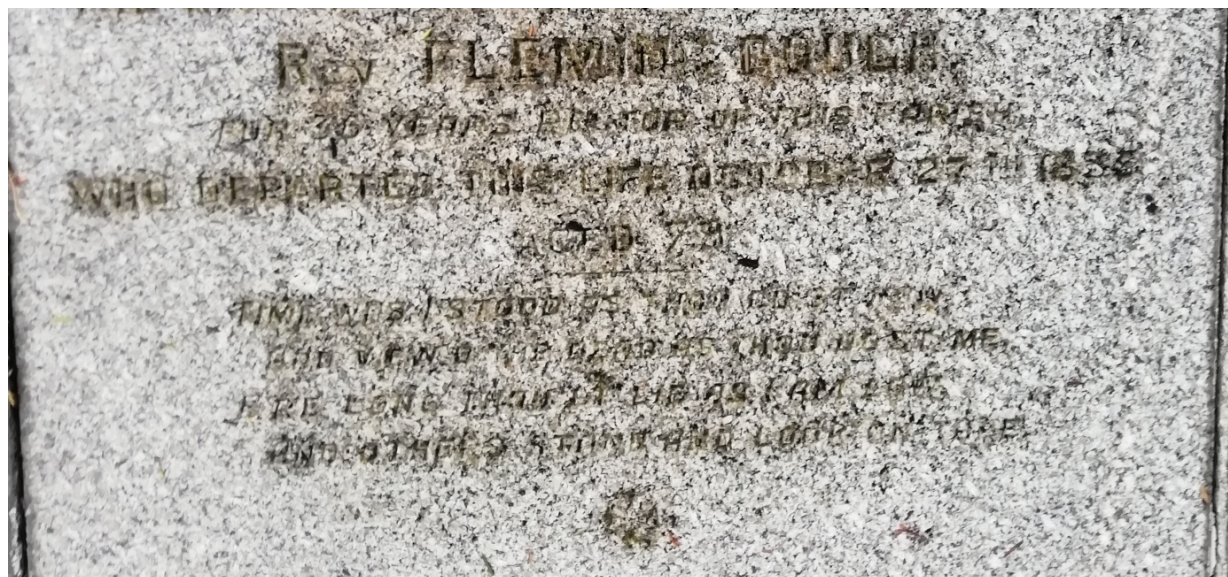 Rev FLEMING GOUGH
FOR 36 YEARS RECTOR OF THIS PARISH
WHO DEPARTED THIS LIFE OCTOBER 27TH
AGED
TIME WAS I STOOD AS THOU DOST NOW
AND VIEW'D THE DEAD AS THOU DOST ME
ERE LONG THOU'LT LIE AS I AM LOW
AND OTHERS STAND AND LOOK ON THEE